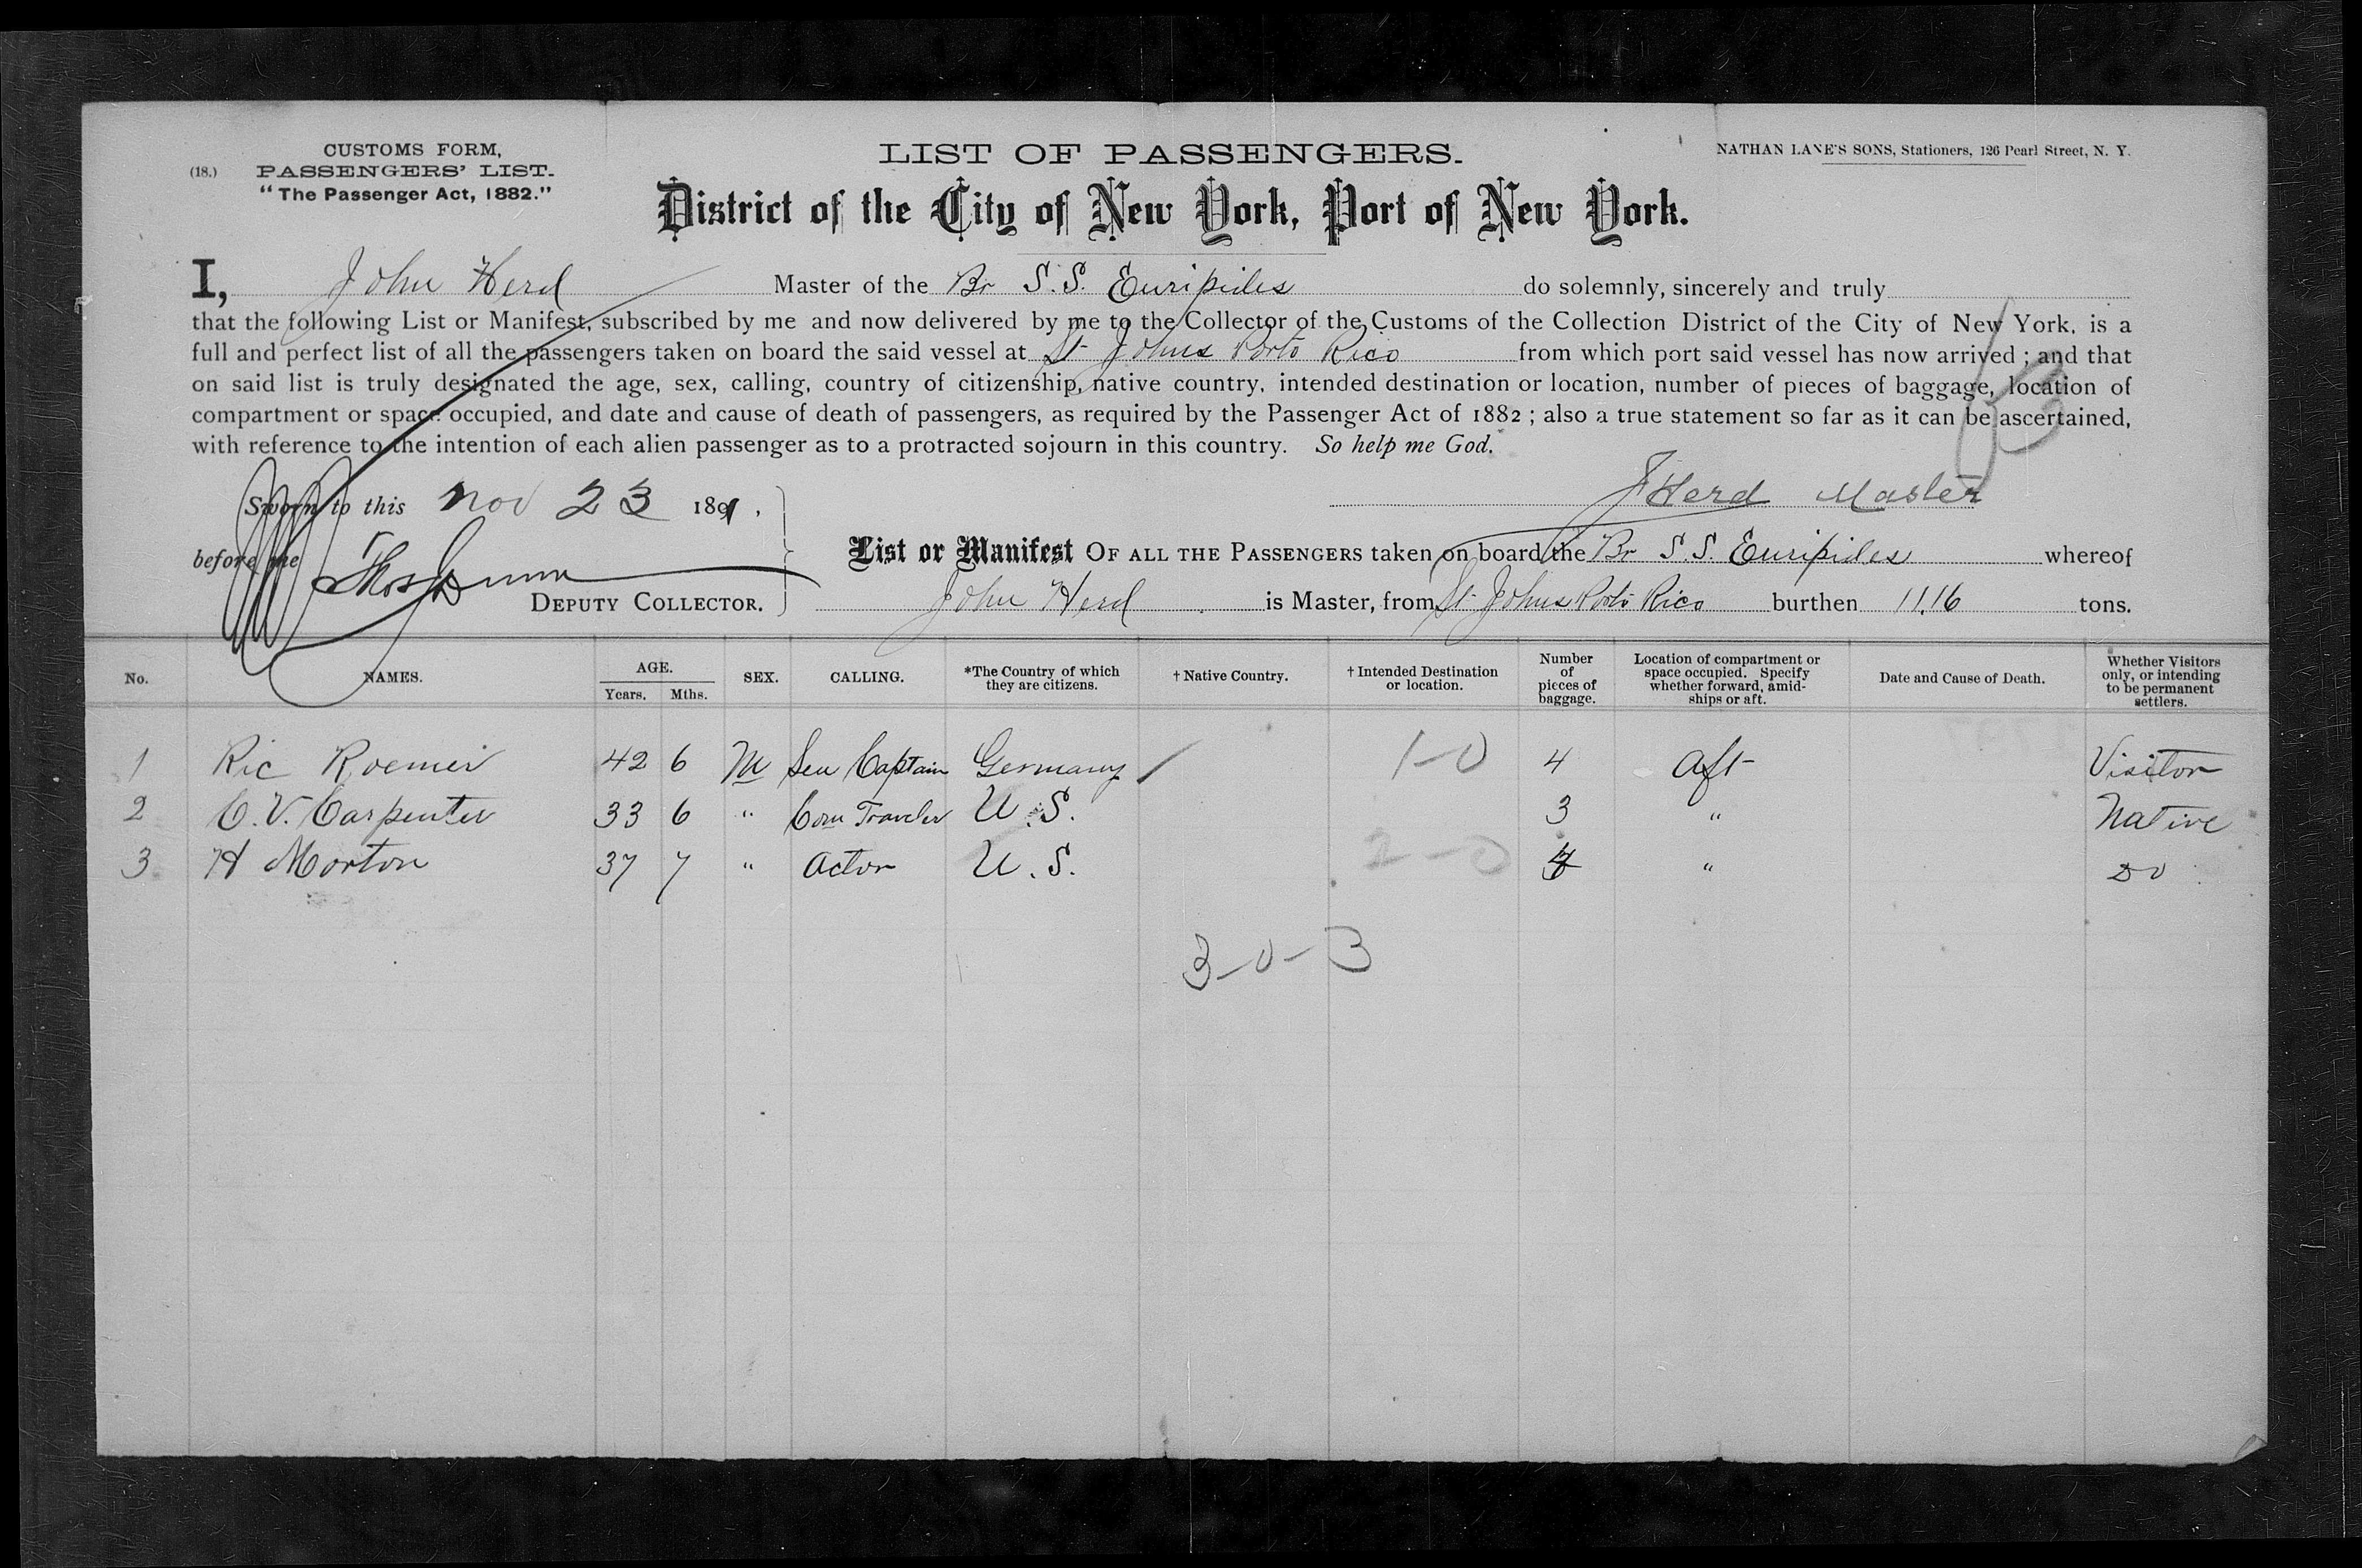 (18.)
CUSTOMS FORM,
PASSENGERS' LIST.
"The Passenger Act, 1882."
LIST OF PASSENGERS.
NATHAN LANE'S SONS, Stationers, 126 Pearl Street, N. Y.
District of the City of New York, Port of New York.
I, John Herd Master of the Br S.S. Euripides do solemnly, sincerely and truly
that the following List or Manifest, subscribed by me and now delivered by me to the Collector of the Customs of the Collection District of the City of New York, is a
full and perfect list of all the passengers taken on board the said vessel at St Johns Porto Rico from which port said vessel has now arrived ; and that
on said list is truly designated the age, sex, calling, country of citizenship, native country, intended destination or location, number of pieces of baggage, location of
compartment or space occupied, and date and cause of death of passengers, as required by the Passenger Act of 1882 ; also a true statement so far as it can be ascertained,
with reference to the intention of each alien passenger as to a protracted sojourn in this country. So help me God.
J Herd Master
Sworn to this Nov 23 1891,
before me
DEPUTY COLLECTOR.
List or Manifest OF ALL THE PASSENGERS taken on board the Br S.S. Euripides whereof
John Herd is Master, from St Johns Porto Rico burthen 1116 tons.
No. NAMES. AGE. Years. Mths. SEX. CALLING. *The Country of which they are citizens. † Native Country. † Intended Destination or location. Number of pieces of baggage. Location of compartment or space occupied. Specify whether forward, amidships or aft. Date and Cause of Death. Whether Visitors only, or intending to be permanent settlers.
1 Ric Roemer 42 6 M Sea Captain Germany / 1-0 4 Aft Visitor
2 C. V. Carpenter 33 6 " Com Traveler U.S. 3 " Native
3 H Morton 37 7 " Actor U.S. 2-0 " Do
3-0-3